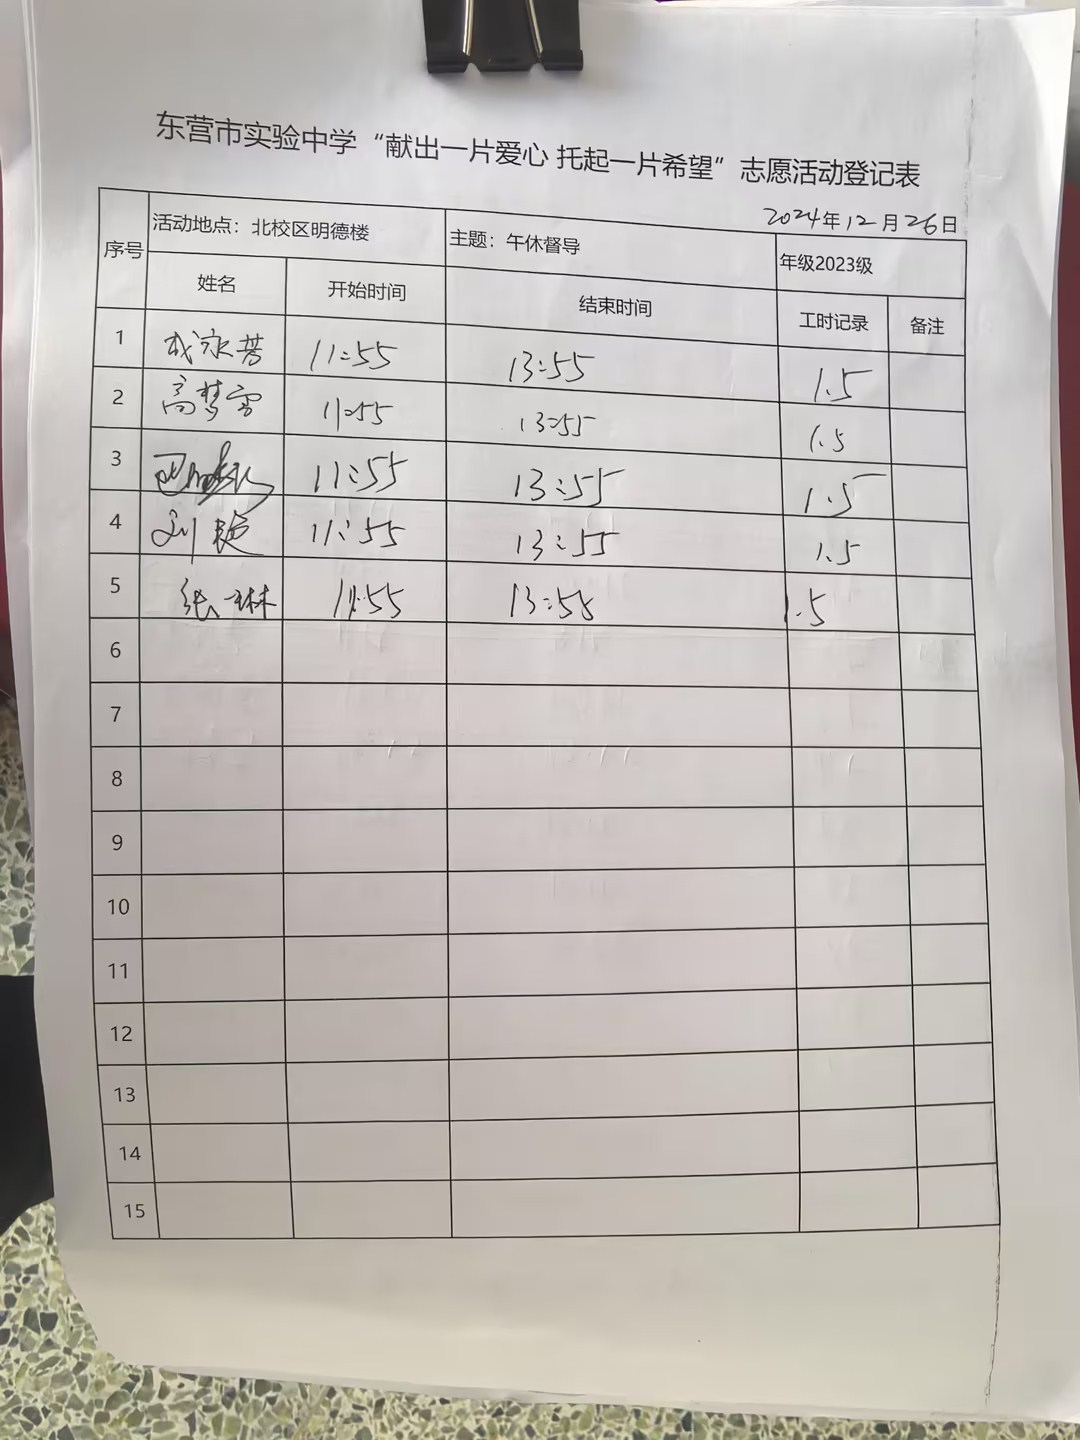 东营市实验中学“献出一片爱心 托起一片希望”志愿活动登记表
2024年12月26日
序号 活动地点：北校区明德楼 主题：午休督导 年级2023级
姓名 开始时间 结束时间 工时记录 备注
1 成永普 11:55 13:55 1.5
2 高梦雪 11:55 13:55 1.5
3 11:55 13:55 1.5
4 刘 11:55 13:55 1.5
5 张琳 11:55 13:55 1.5
6
7
8
9
10
11
12
13
14
15